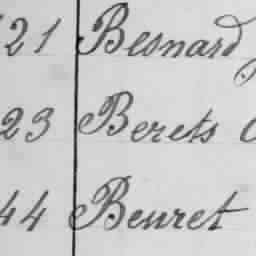 21 Besnard
23 Berets
44 Beuret